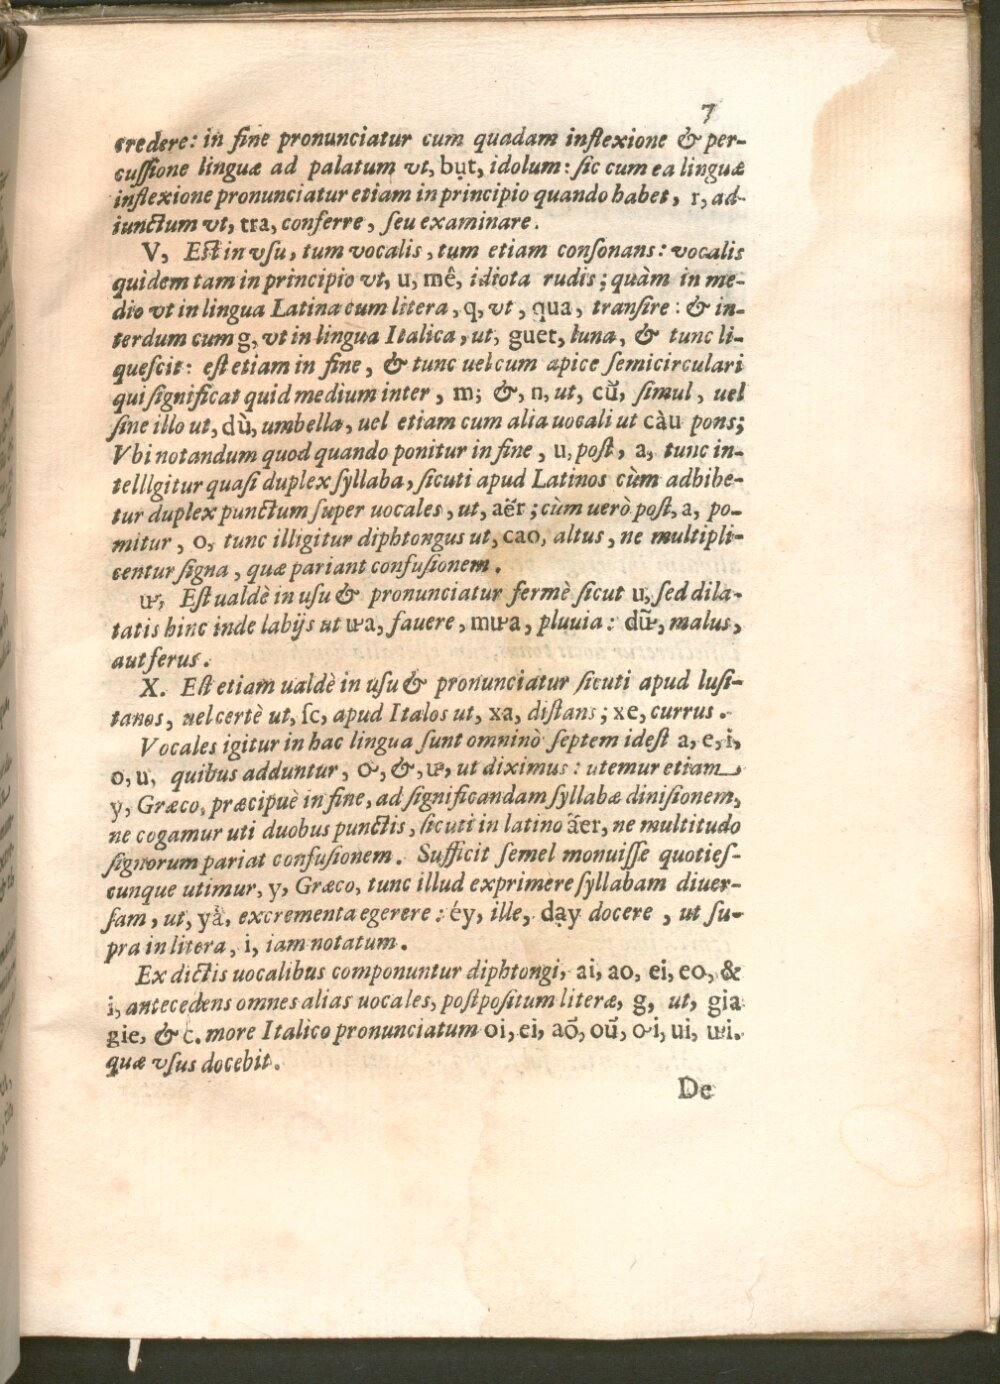 7
credere: in fine pronunciatur cum quadam inflexione & per-
cuſſione linguæ ad palatum vt, bụt, idolum: ſic cum ea linguæ
inflexione pronunciatur etiam in principio quando habet, r, ad-
iunctum vt, tra, conferre, ſeu examinare.
V, Eſt in vſu, tum vocalis, tum etiam conſonans: vocalis
quidem tam in principio vt, u, mê, idiota rudis; quàm in me-
dio vt in lingua Latina cum litera, q, vt, qua, tranſire: & in-
terdum cum g, vt in lingua Italica, ut, guet, luna, & tunc li-
queſcit: eſt etiam in fine, & tunc uel cum apice ſemicirculari
qui ſignificat quid medium inter, m; &, n, ut, cũ, ſimul, uel
ſine illo ut, dù, umbella, uel etiam cum alia uocali ut càu pons;
Vbi notandum quod quando ponitur in fine, u, poſt, a, tunc in-
telllgitur quaſi duplex ſyllaba, ſicuti apud Latinos cùm adhibe-
tur duplex punctum ſuper uocales, ut, aër; cùm uerò poſt, a, po-
mitur, o, tunc illigitur diphtongus ut, cao, altus, ne multipli-
centur ſigna, quæ pariant confuſionem.
ư, Eſt ualdè in uſu & pronunciatur fermè ſicut u, ſed dila-
tatis hinc inde labijs ut ưa, fauere, mưa, pluuia: dữ, malus,
aut ferus.
X. Eſt etiam ualdè in uſu & pronunciatur ſicuti apud luſi-
tanos, uel certè ut, ſc, apud Italos ut, xa, diſtans; xe, currus.
Vocales igitur in hac lingua ſunt omninò ſeptem ideſt a, e, i,
o, u, quibus adduntur, ơ, &, ư, ut diximus: utemur etiam
y, Græco, præcipuè in fine, ad ſignificandam ſyllabæ diniſionem,
ne cogamur uti duobus punctis, ſicuti in latino äer, ne multitudo
ſignorum pariat confuſionem. Sufficit ſemel monuiſſe quotieſ-
cunque utimur, y, Græco, tunc illud exprimere ſyllabam diuer-
ſam, ut, yả, excrementa egerere: éy, ille, dạy docere, ut ſu-
pra in litera, i, iam notatum.
Ex dictis uocalibus componuntur diphtongi, ai, ao, ei, eo, &
i, antecedens omnes alias uocales, poſtpoſitum literæ, g, ut, gia
gie, & c. more Italico pronunciatum oi, ei, aõ, oũ, ơi, ui, ưi.
quæ vſus docebit.
De